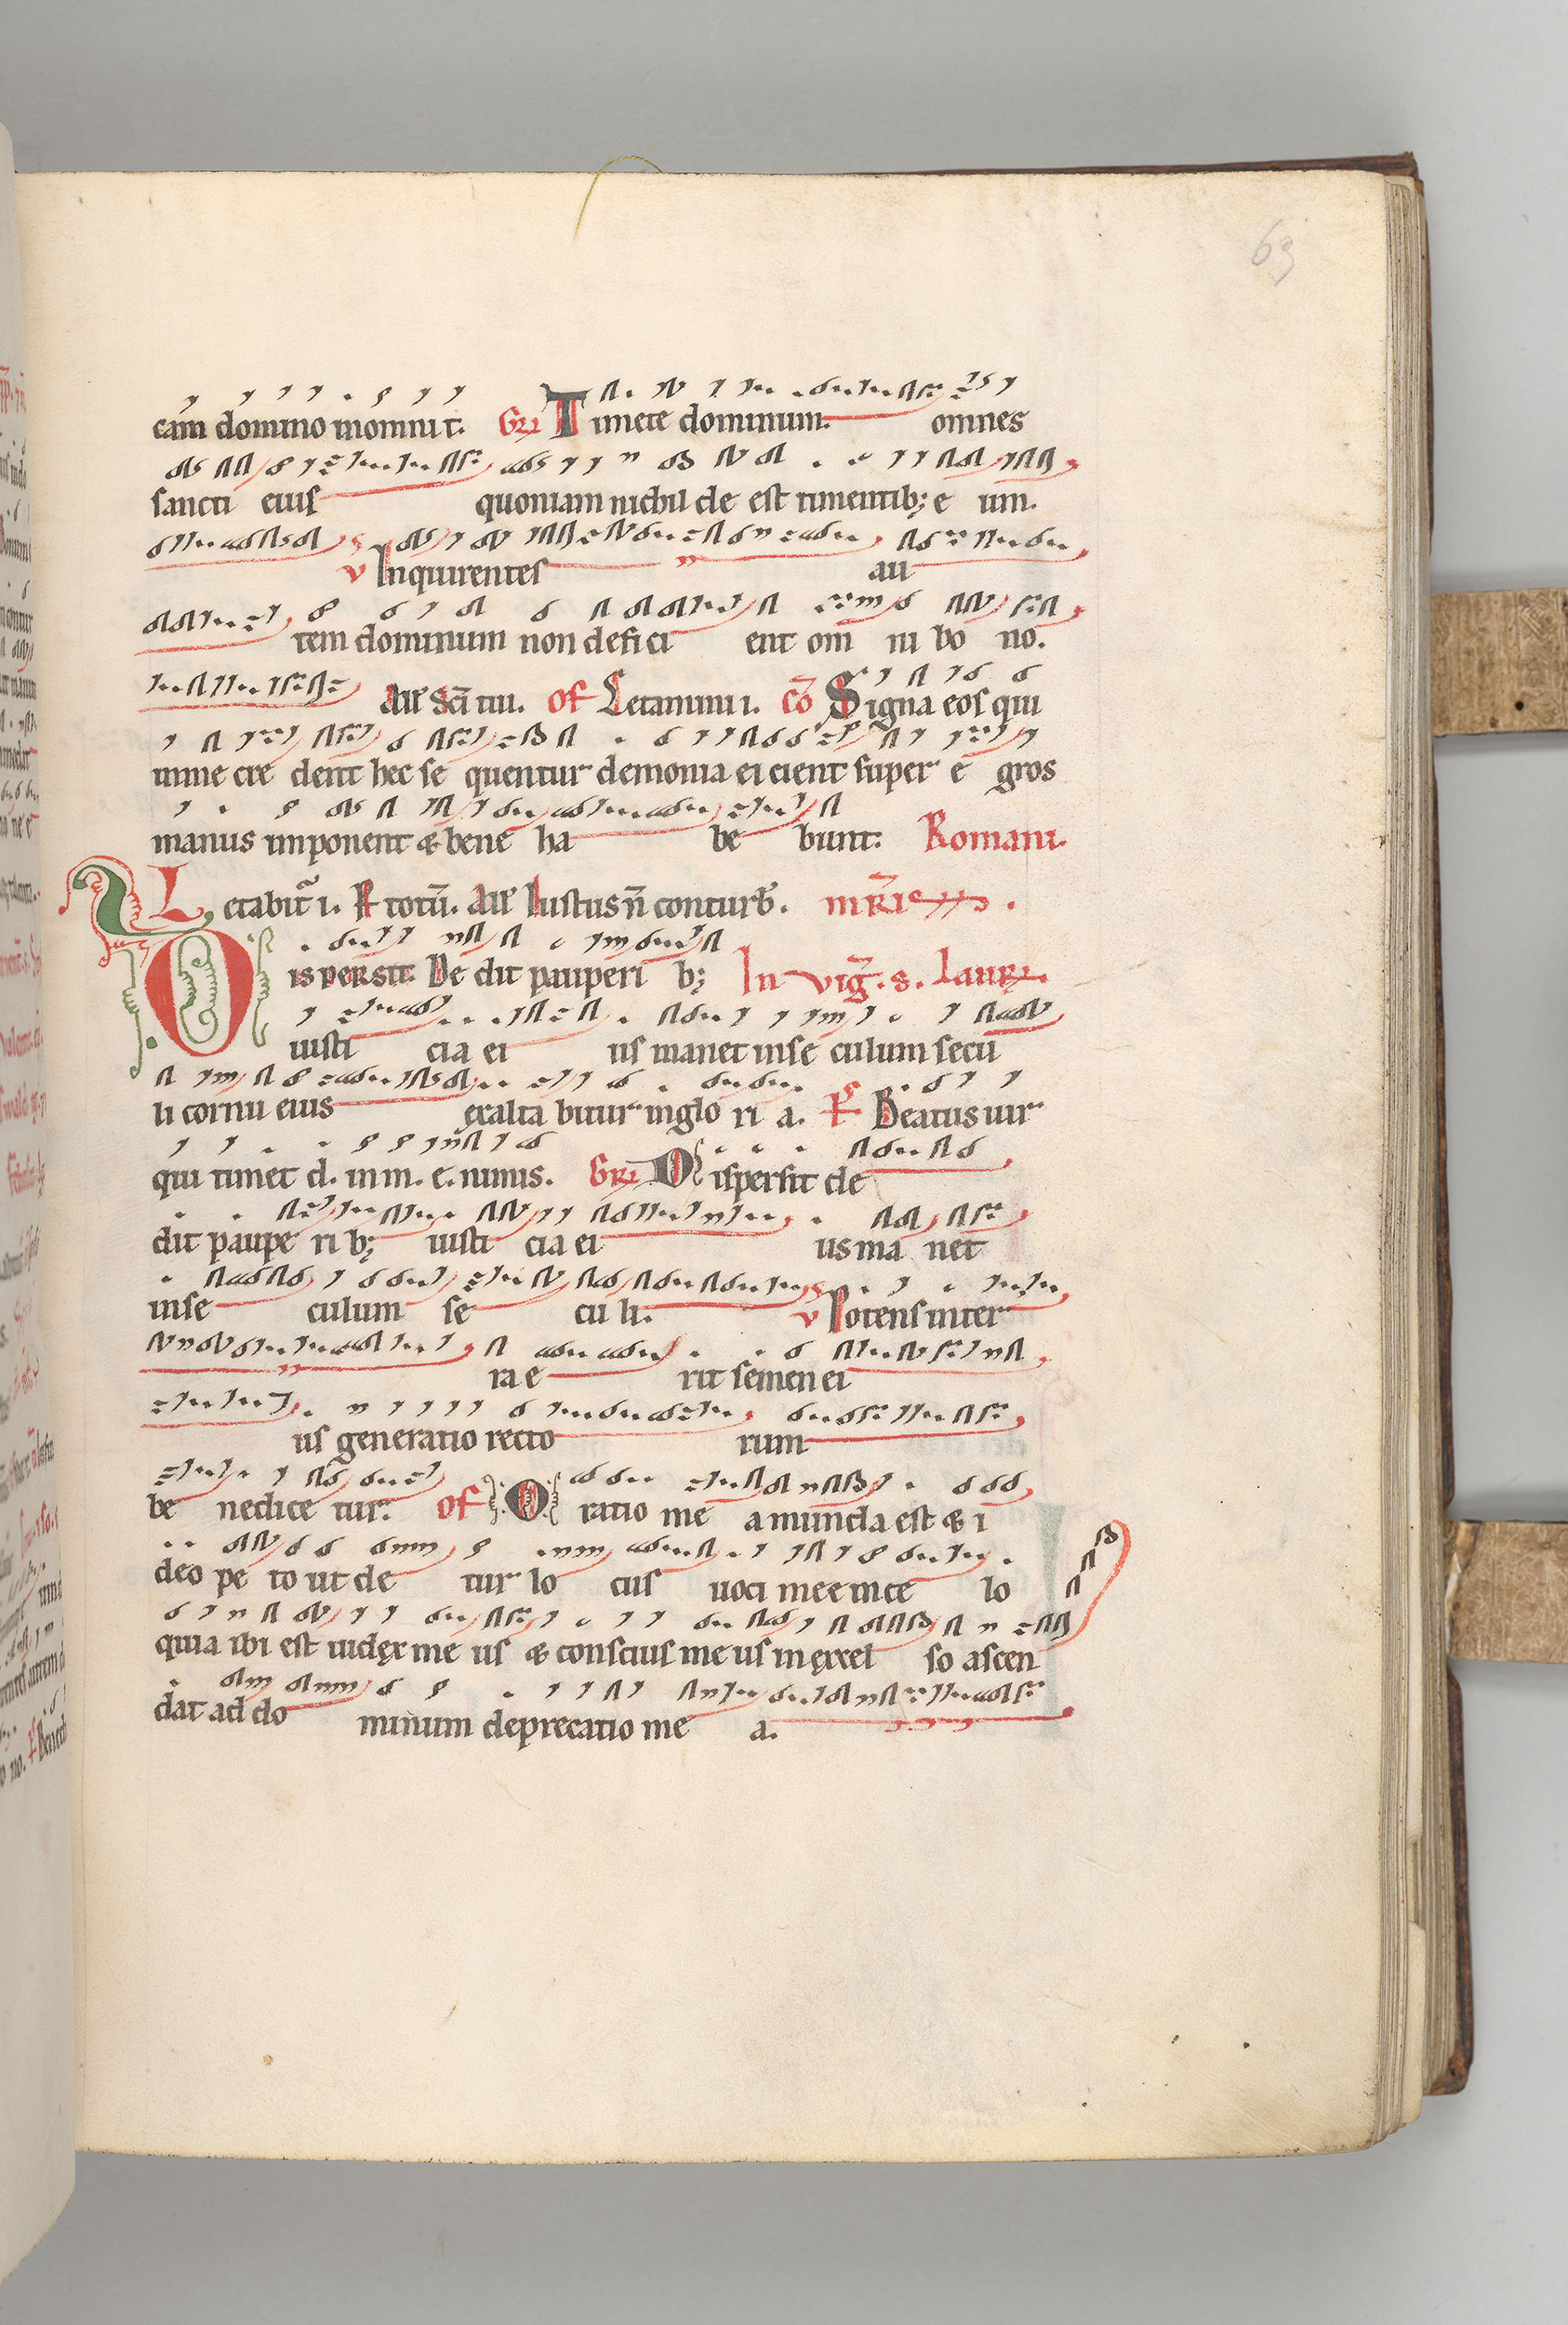 69
cam domino in omni t. Gr Timete dominum. omnes
sancti eius quoniam nichil de est timentib; e um.
v Inquirentes au
tem dominum non defici ent om ni bo no.
All'a Sc̄i tui. of Letamini i. cō Signa eos qui
in me cre dent hec se quentur demonia ei cient super e gros
manus imponent & bene ha be bunt. Romani.
Letabit̃ i. Ps totū. All'a Iustus n̄ conturb̄. mR̄is
Dispersit. De dit pauperi b; In vig̃. s. Laur.
iusti cia ei us manet in se culum secū
li cornu eius exalta bitur in glo ri a. Ps Beatus uir
qui timet d. in m. e. nimis. Gr Dispersit de
dit paupe ri b; iusti cia ei us ma net
in se culum se cu li. v Potens in ter
ra e rit semen ei
us generatio recto rum
be nedice tur. of Oratio me a munda est & i
deo pe to ut de tur lo cus uoci mee in ce lo
quia ibi est iudex me us & conscius me us in excel so ascen
dat ad do minum deprecatio me a.